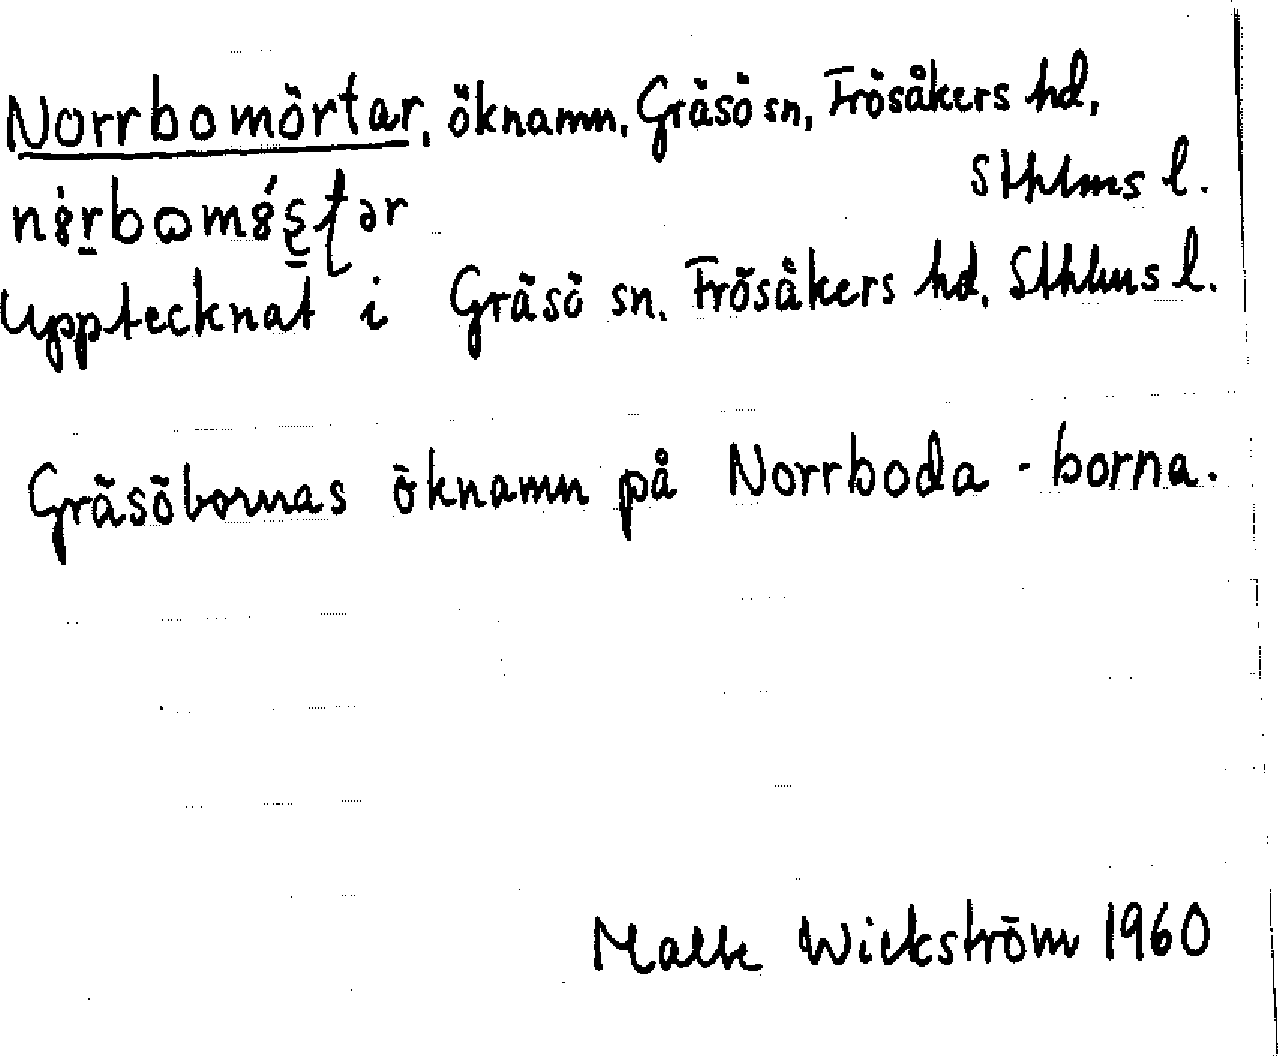 Norrbomörtar, öknamn, Gräsö sn, Frösåkers hd,
Sthlms l.
Upptecknat i Gräsö sn. Frösåkers hd. Sthlms l.
Gräsöbornas öknamn på Norrboda-borna.
Wickström 1960